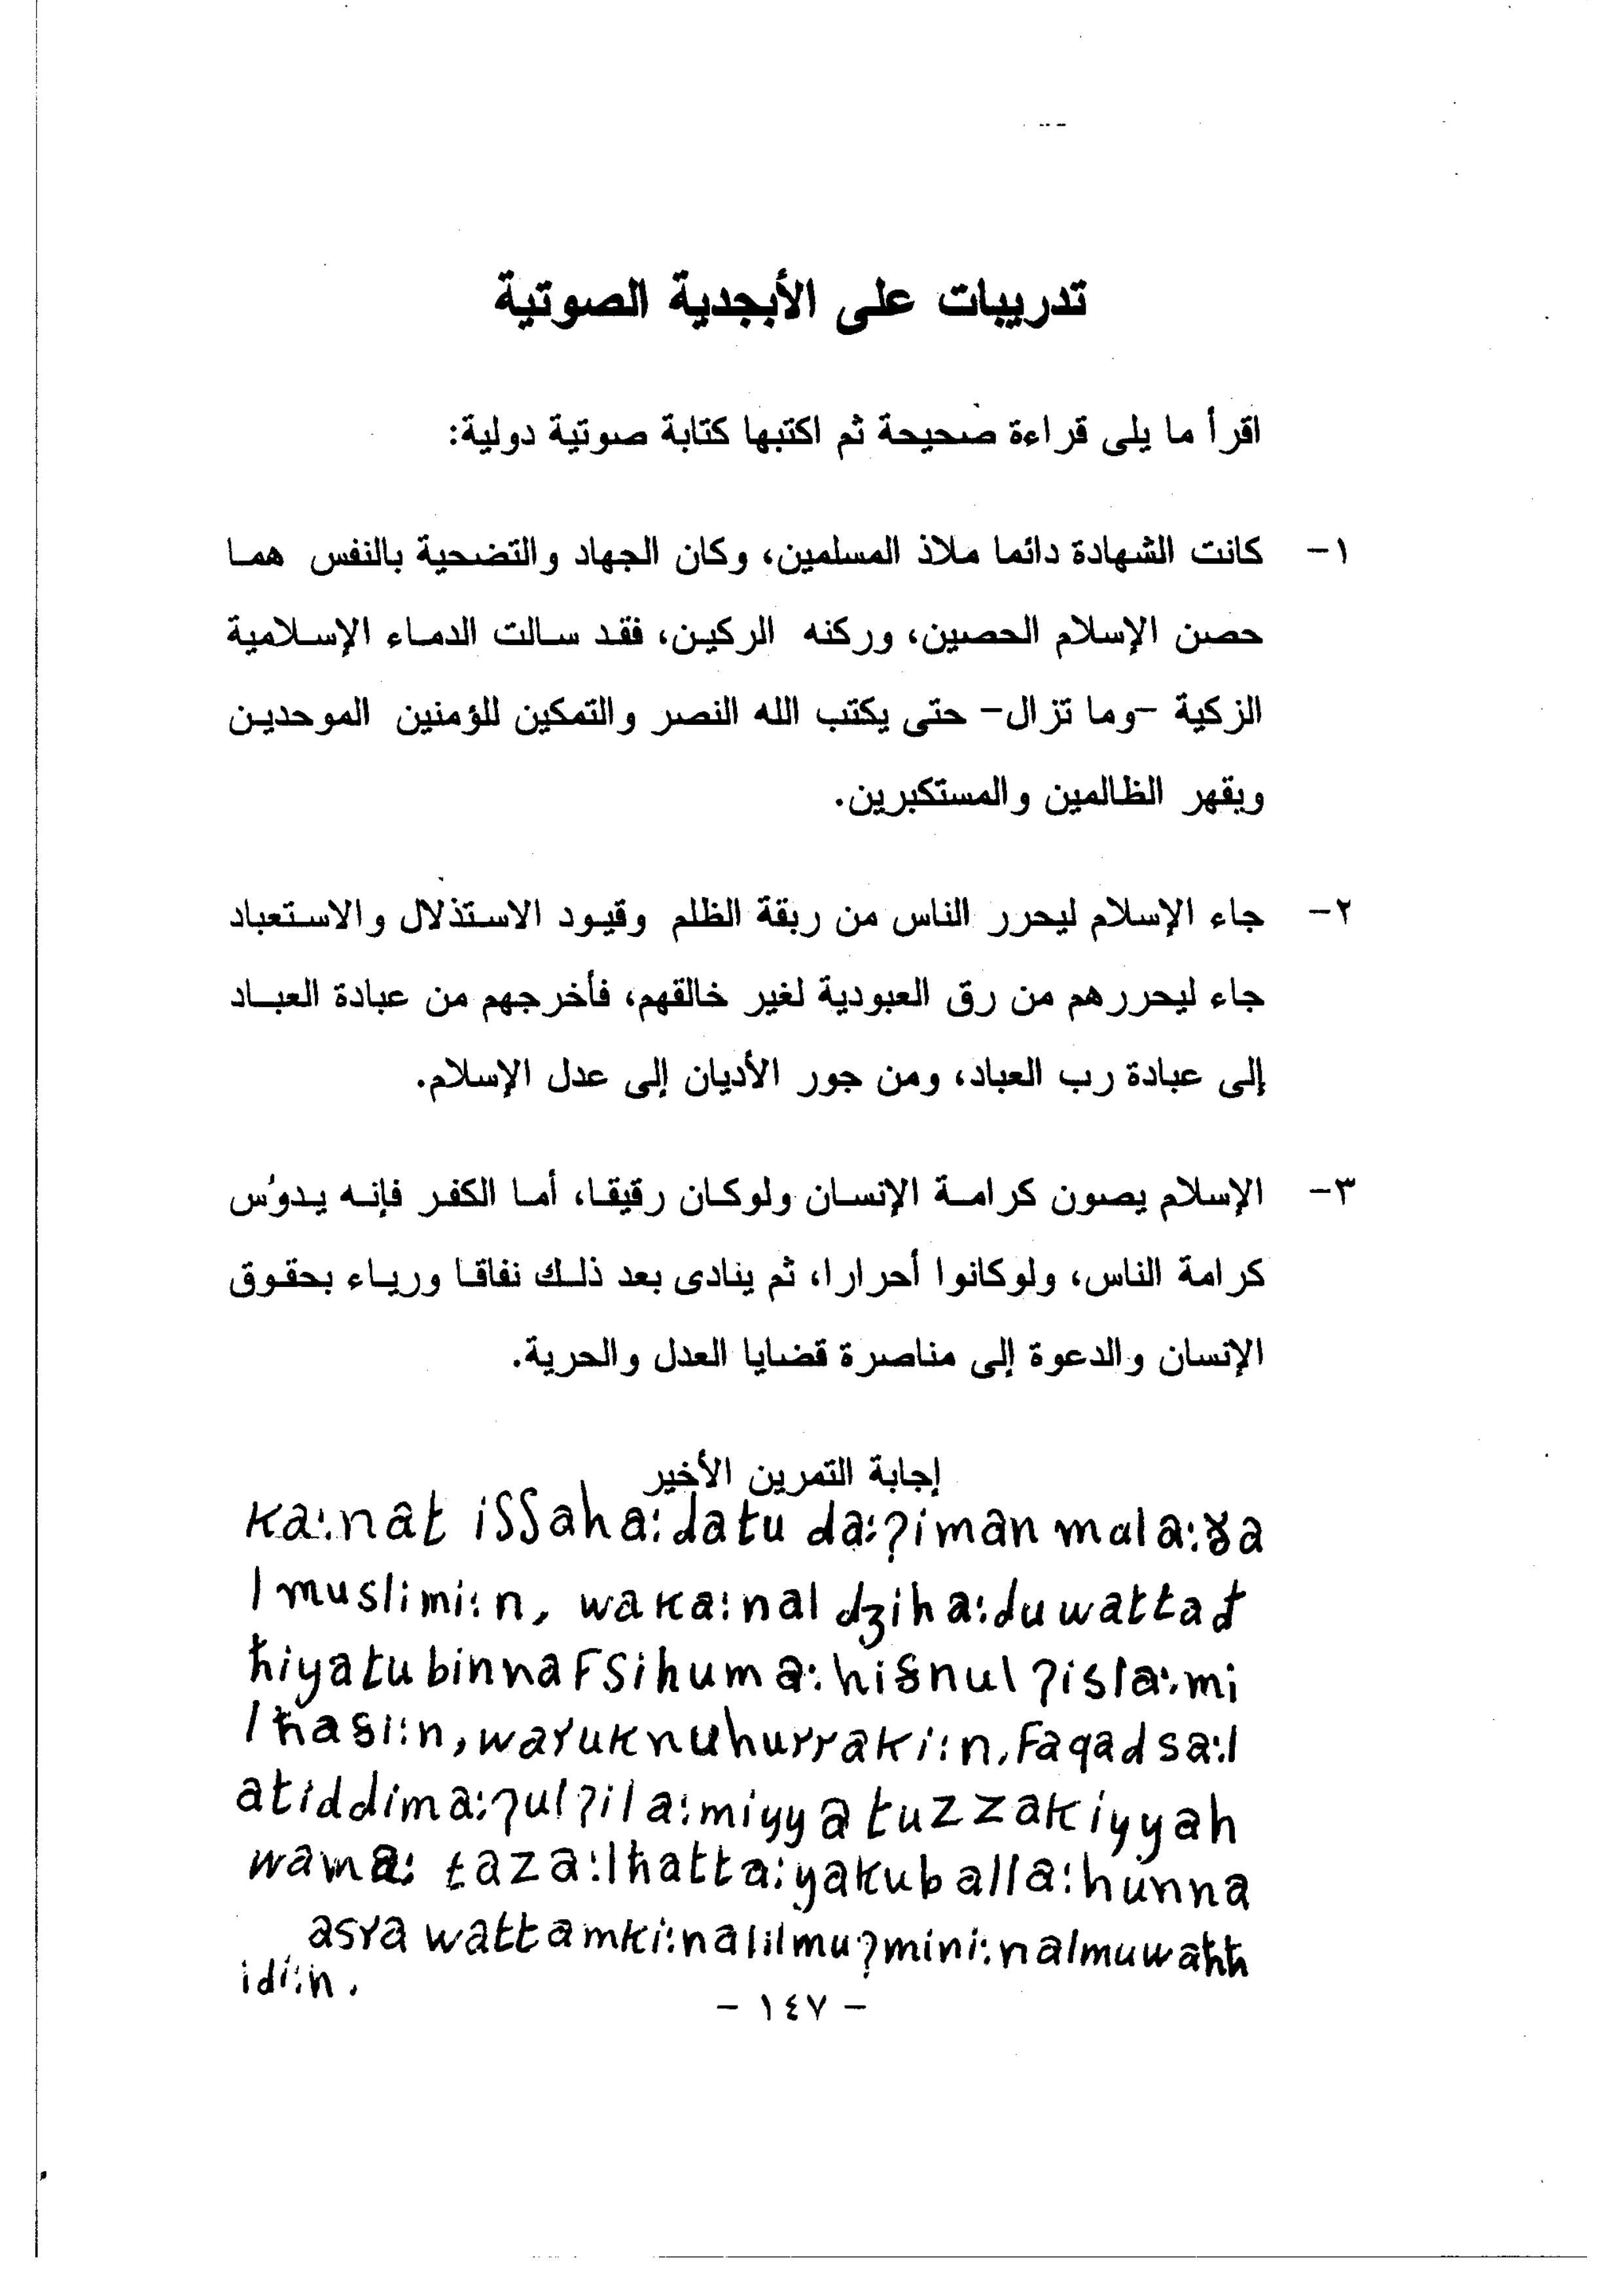 تدريبات على الأبجدية الصوتية
اقرأ ما يلى قراءة صحيحة ثم اكتبها كتابة صوتية دولية:
١- كانت الشهادة دائما ملاذ المسلمين، وكان الجهاد والتضحية بالنفس هما
حصن الإسلام الحصين، وركنه الركين، فقد سالت الدماء الإسلامية
الزكية -وما تزال- حتى يكتب الله النصر والتمكين للؤمنين الموحدين
ويقهر الظالمين والمستكبرين.
٢- جاء الإسلام ليحرر الناس من ربقة الظلم وقيود الاستذلال والاستعباد
جاء ليحررهم من رق العبودية لغير خالقهم، فأخرجهم من عبادة العباد
إلى عبادة رب العباد، ومن جور الأديان إلى عدل الإسلام.
٣- الإسلام يصون كرامة الإنسان ولوكان رقيقا، أما الكفر فإنه يدوُس
كرامة الناس، ولوكانوا أحرارا، ثم ينادى بعد ذلك نفاقا ورياء بحقوق
الإنسان والدعوة إلى مناصرة قضايا العدل والحرية.
إجابة التمرين الأخير
ka:nat iʃʃaha:datu da:ʔiman mala:ꝩa
lmuslimi:n, waka:nal dʒiha:du wattađ
ħiyatu binnafsihuma: hisnul ʔisla:mi
lħasi:n, waruknuhurraki:n, faqad sa:l
atiddima:ʔulʔila:miyyatuzzakiyyah
wama: taza:lħatta:yakuballa:hunna
asra wattamki:nalilmuʔmini:nalmuwaħħ
idi:n.
- ١٤٧ -